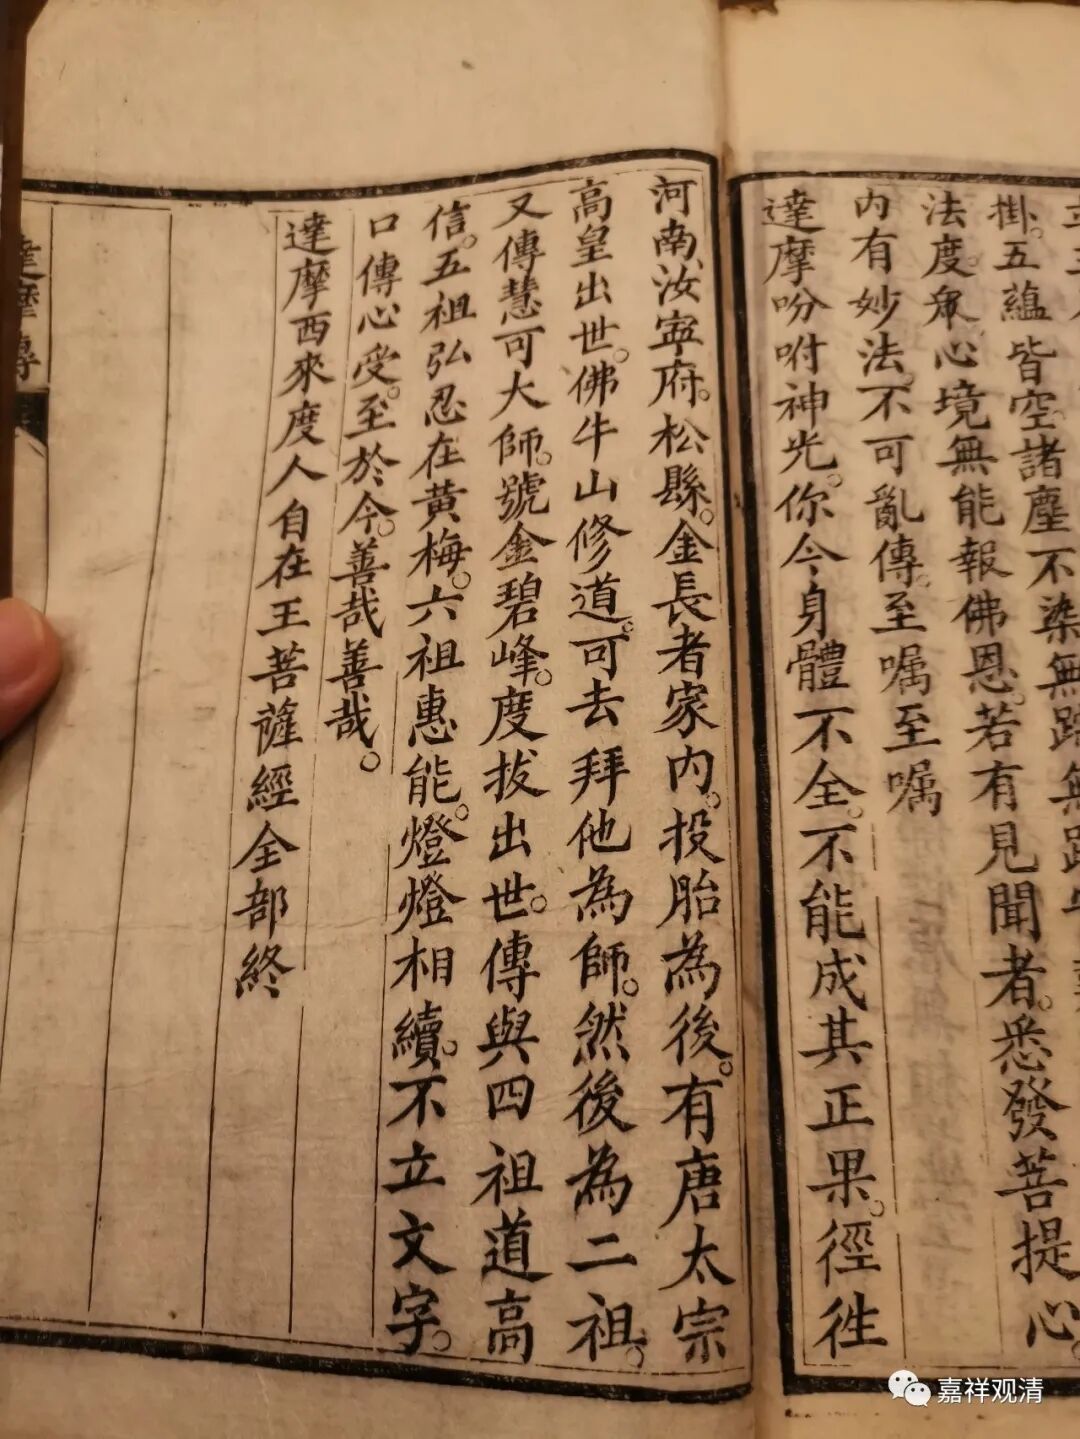 掛。五蘊皆空。諸塵不染。無
法度眾心境無能報佛恩。若有見聞者。悉發菩提心。
內有妙法。不可亂傳。至囑至囑
達摩吩咐神光。你今身體不全。不能成其正果。徑往
河南汝寧府。松縣。金長者家內。投胎為後。有唐太宗
高皇出世。佛牛山修道。可去拜他為師。然後為二祖。
又傳慧可大師。號金碧峰。度拔出世。傳與四祖道高
信。五祖弘忍在黃梅。六祖惠能。燈燈相續。不立文字。
口傳心受。至於今。善哉善哉。
達摩西來度人自在王菩薩經全部終
達摩傳
嘉祥观清